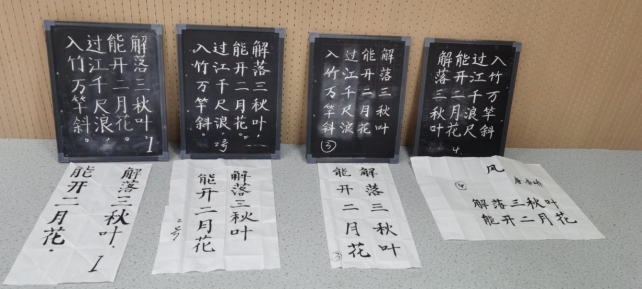 解落三秋叶，1
能开二月花。
过江千尺浪，
入竹万竿斜。
解落三秋叶，
能开二月花。
过江千尺浪，
入竹万竿斜。
2号
解落三秋叶
能开二月花
过江千尺浪
入竹万竿斜
③
解落三秋叶
能开二月花
过江千尺浪
入竹万竿斜
4
解落三秋叶，1
能开二月花。
解落三秋叶
能开二月花
二号
解落三秋叶
能开二月花
③
风
④
解落三秋叶
能开二月花